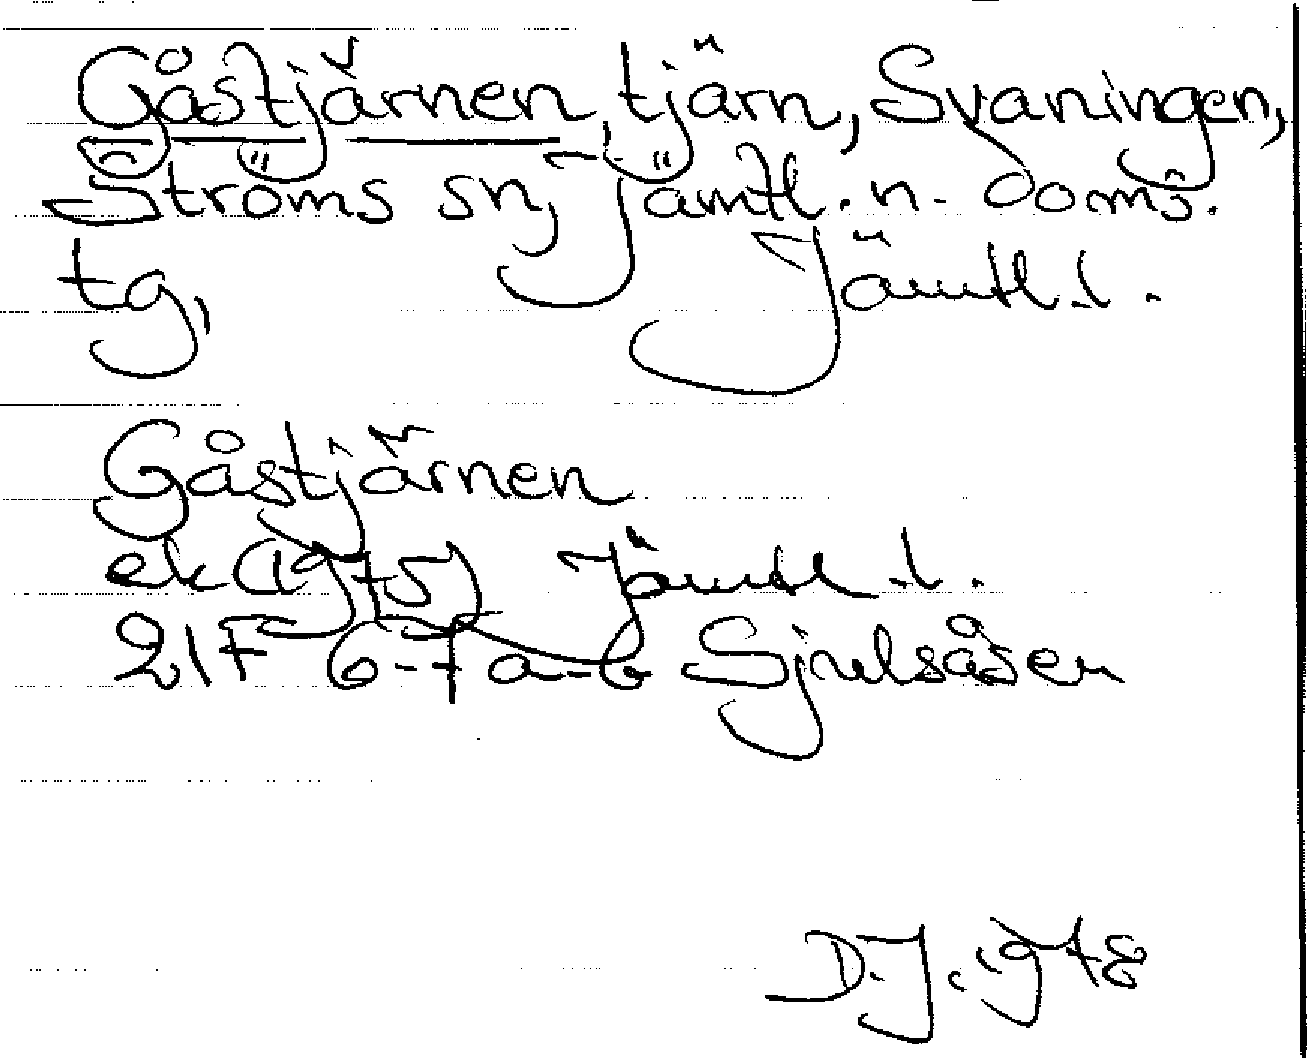 Gåstjärnen, tjärn, Svaningen,
Ströms sn, Jämtl. n. doms.
tg, Jämtl. l.
Gåstjärnen
ek (1975) Jämtl. l.
21F 6-7 a-b Sjulsåsen
D.J. 1978